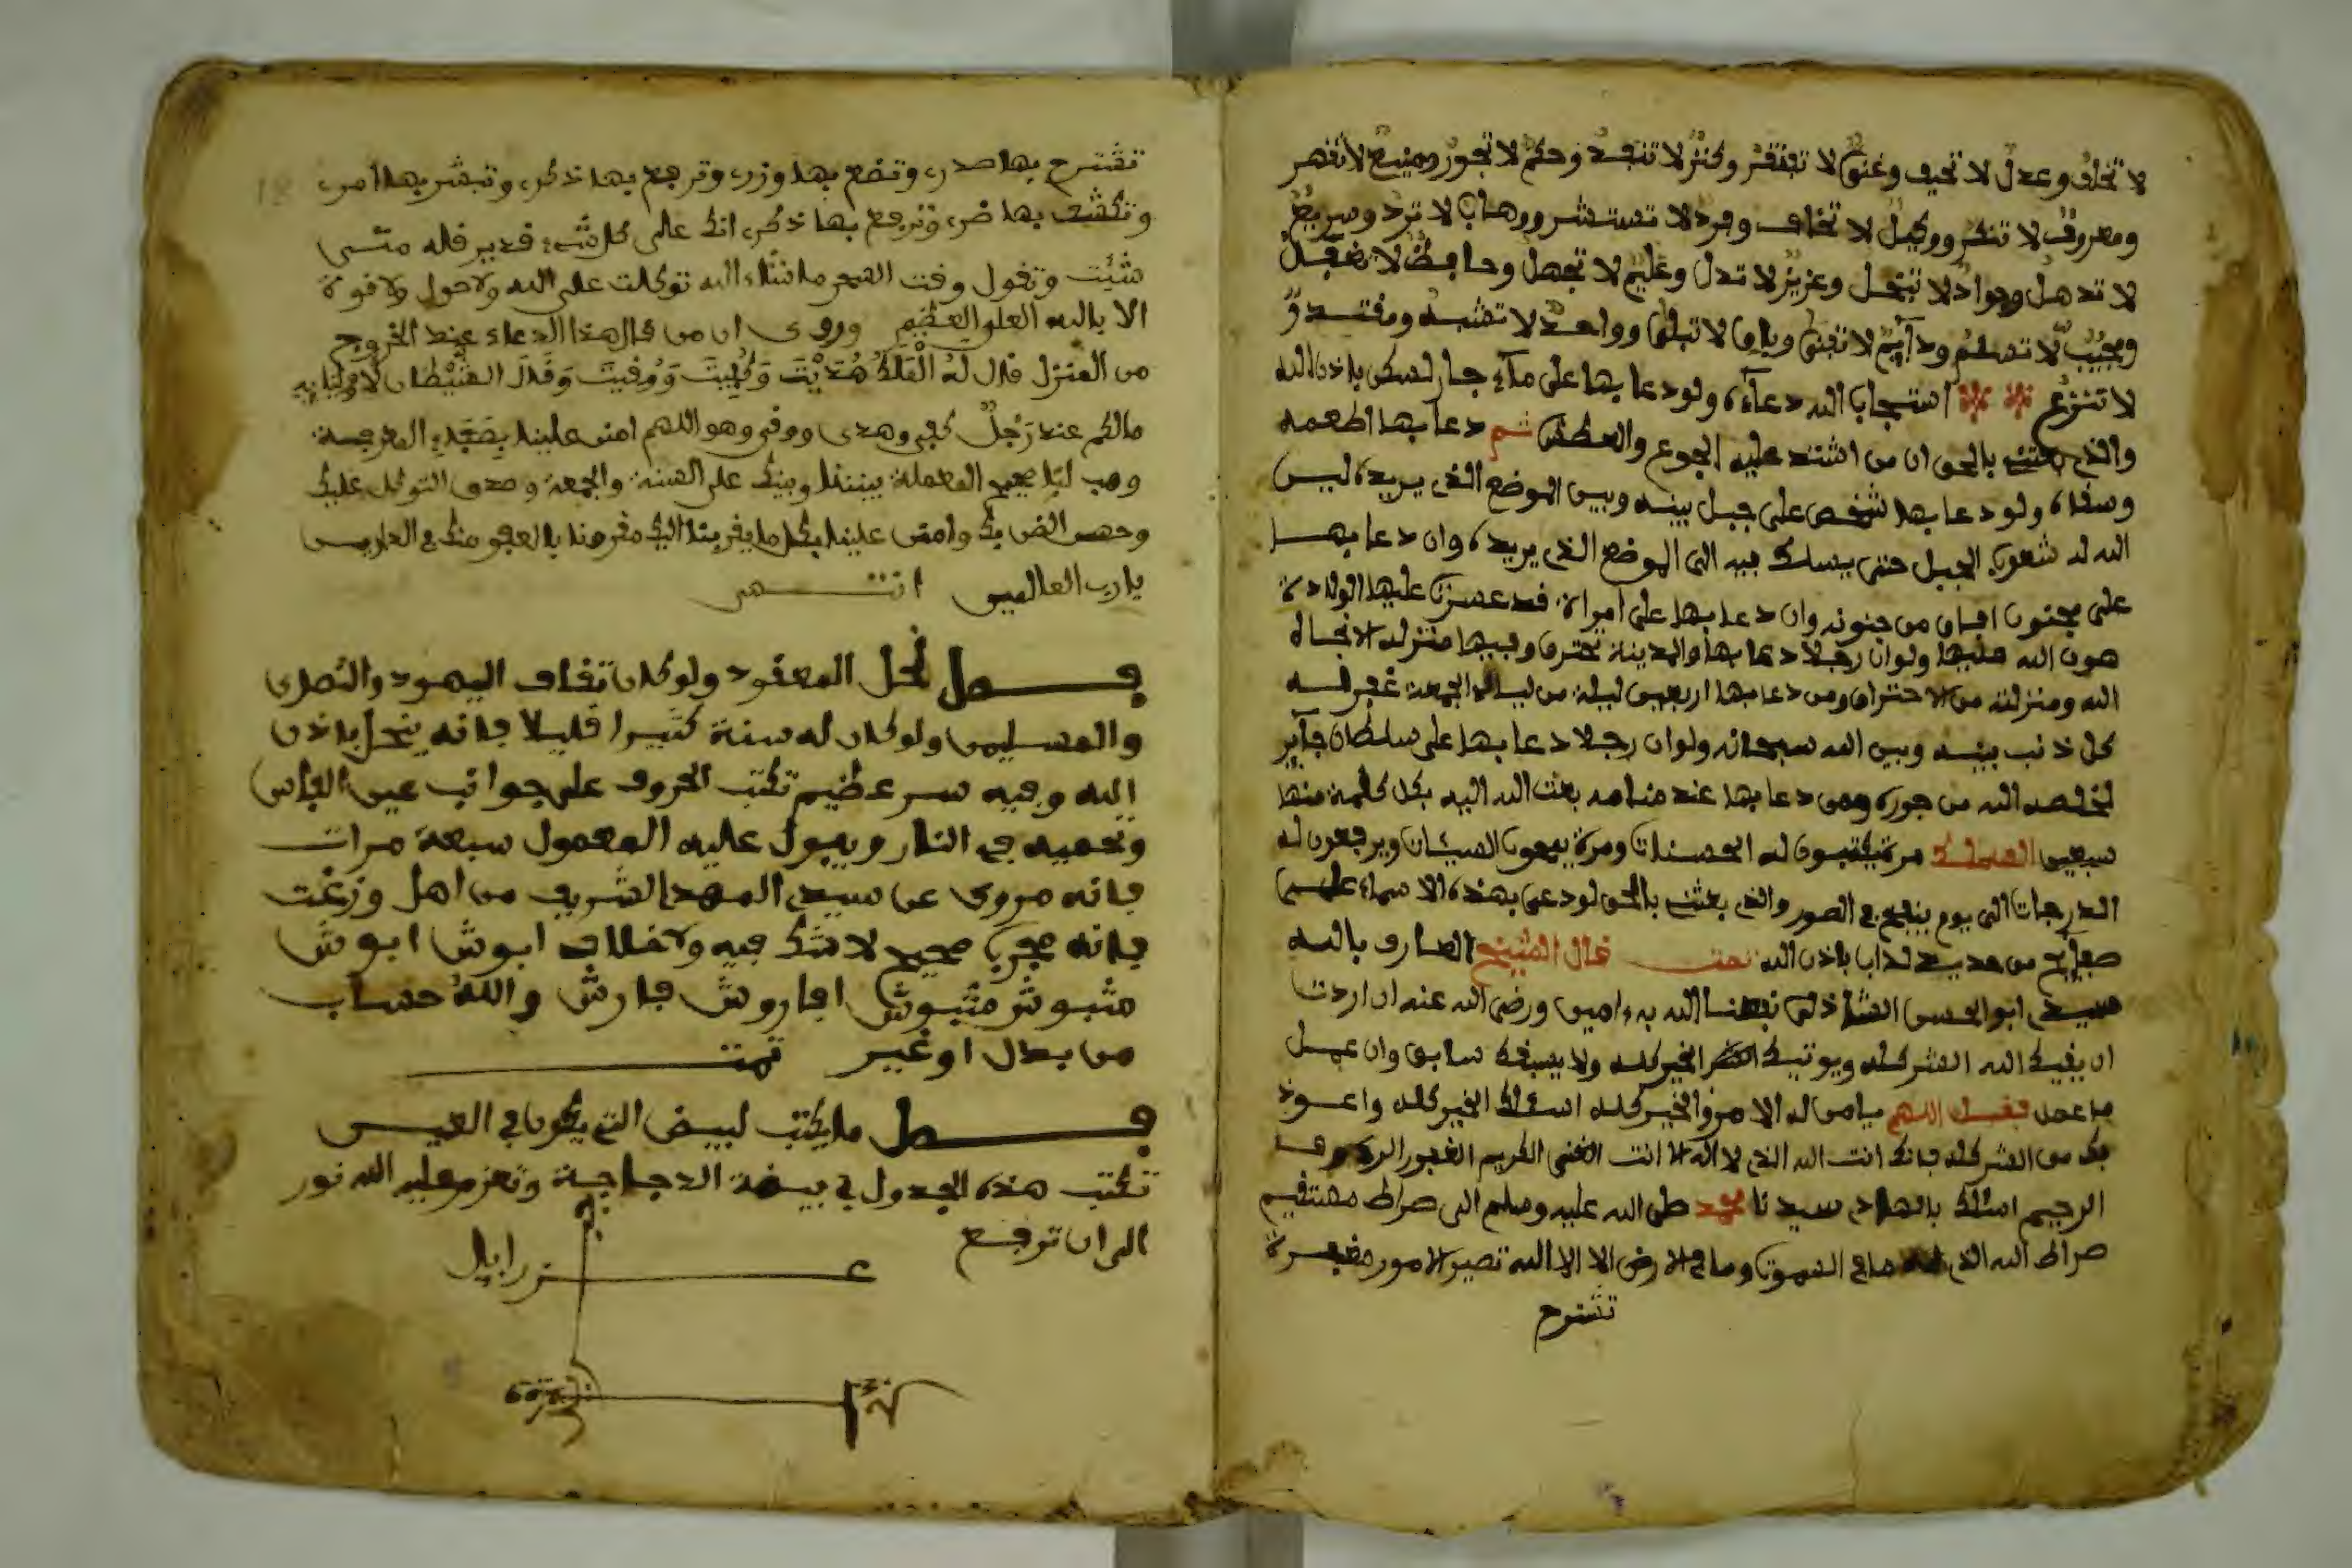 لا تخلف وعدل لا تحيف وغني لا تفتقر وكنز لا تنفد وحكم لا تجور ومنيع لا تقهر
ومعروف لا تنكر ووكيل لا تخاف وفرد لا تستشر ووهاب لا ترد وسريع
لا تذهل وجواد لا تبخل وعزيز لا تذل وعليم لا تجهل وحافظ لا تغفل
ومجيب لا تسلم ودآيم لا تفنى وباق لا تبلى وواحد لا تشبه ومقتدر
لا تنزع استجاب الله دعآءه ولو دعا بها على مآء جار لسكن باذن الله
والذي بعثني بالحق ان من اشتد عليه الجوع والعطش ثم دعا بها اطعمه
وسقاه ولو دعا بها شخص على جبل بينه وبين الموضع الذي يريده ليس
الله له شعوب الجبل حتى يسلك فيه الى الموضع الذي يريده وان دعا بها
على مجنون افاق من جنونه وان دعا بها على امراة قد عسرت عليها الولادة
هون الله عليها ولو ان رجلا دعا بها والمدينة تحترق وفيها منزله لانجاه
الله ومنزلته من الاحتراق ومن دعا بها اربعين ليلة من ليالي الجمعة غفر له
كل ذنب بينه وبين الله سبحانه ولو ان رجلا دعا بها على سلطان جآير
لخلصه الله من جوره ومن دعا بها عند منامه بعث الله اليه بكل كلمة منها
سبعين مرة يكتبون له الحسنات ومرة يمحون السيئات ويرفعون له
الدرجات الى يوم ينفخ في الصور والذي بعثني بالحق لو دعي بهذه الاسماء على
صفآيح من حديد لذاب باذن الله تمت قال الشيخ العارف بالله
سيدي ابو الحسن الشاذلي نفعنا الله به ءامين ورضى الله عنه ان اردت
ان يقيك الله الشر كله ويوتيك الخير كله ولا يسبقك سابق وان عمل
ما عمل فقل اللهم يا من له الامر والخير كله اسئلك الخير كله واعوذ
بك من الشر كله فانك انت الله الذي لا اله الا انت الغني الكريم الغفور الرءوف
الرحيم اسئلك بالهادي سيدنا محمد صلى الله عليه وسلم الى صراط مستقيم
صراط الله الذي له ما في السموات وما في الارض الا الى الله تصير الامور مغفرة
تشرح
تشترح بها صدري وتضع بها وزري وترفع بها ذكري وتيسر بها امري
وتكشف بها ضري وترفع بها ذكري انك على كل شيء قدير قله متى
شئت وتقول وقت الفجر ما شاء الله توكلت على الله ولا حول ولا قوة
الا بالله العلي العظيم وروى ان من قال هذا الدعاء عند الخروج
من المنزل قال له الملك هديت وكفيت ووقيت وقال الشيطان لا
مالكم عند رجل كفي وهدى ووقي وهو اللهم امنن علينا بصفاء المعرفة
وهب لنا صحيح المعاملة بيننا وبينك على السنة والجمعة وصدق التوكل عليك
وحسن الظن بك وامنن علينا بكل ما يقربنا اليك مقرونا بالعفو منك في الدارين
يارب العالمين انتهى
فصل لحل المعقود ولو كان ثقاف اليهود والنصرى
والمسلمين ولو كان له سنة كثيرا قليلا فانه ينحل باذن
الله وفيه سر عظيم تكتب الحروف على جوانب عين الفاس
وتحميه في النار ويبول عليه المعمول سبعة مرات
فانه مروى عن سيدي المهدي الشريف من اهل وزغت
فانه مجرب صحيح لا شك فيه ولا خلاف ابوش ابوش
مثبوش مثبوش افاروش فارش والله حساب
من بدل او غير تمت
فصل ما يكتب لبيض التي يكون في العين
تكتب هذه الجدول في بيضة الدجاجة وتعزم عليه الله نور
الى ان ترفع
عزرايل